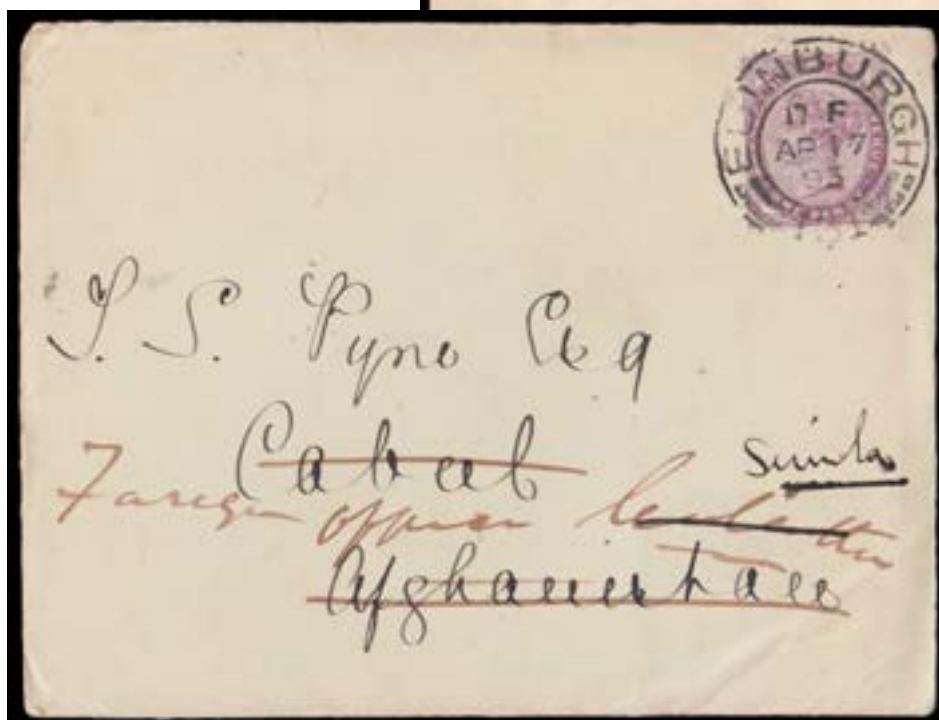 EDINBURGH
AP 17
93
T. S. Pyne Esq
Cabul
Simla
Foreign office Calcutta
Afghanistan